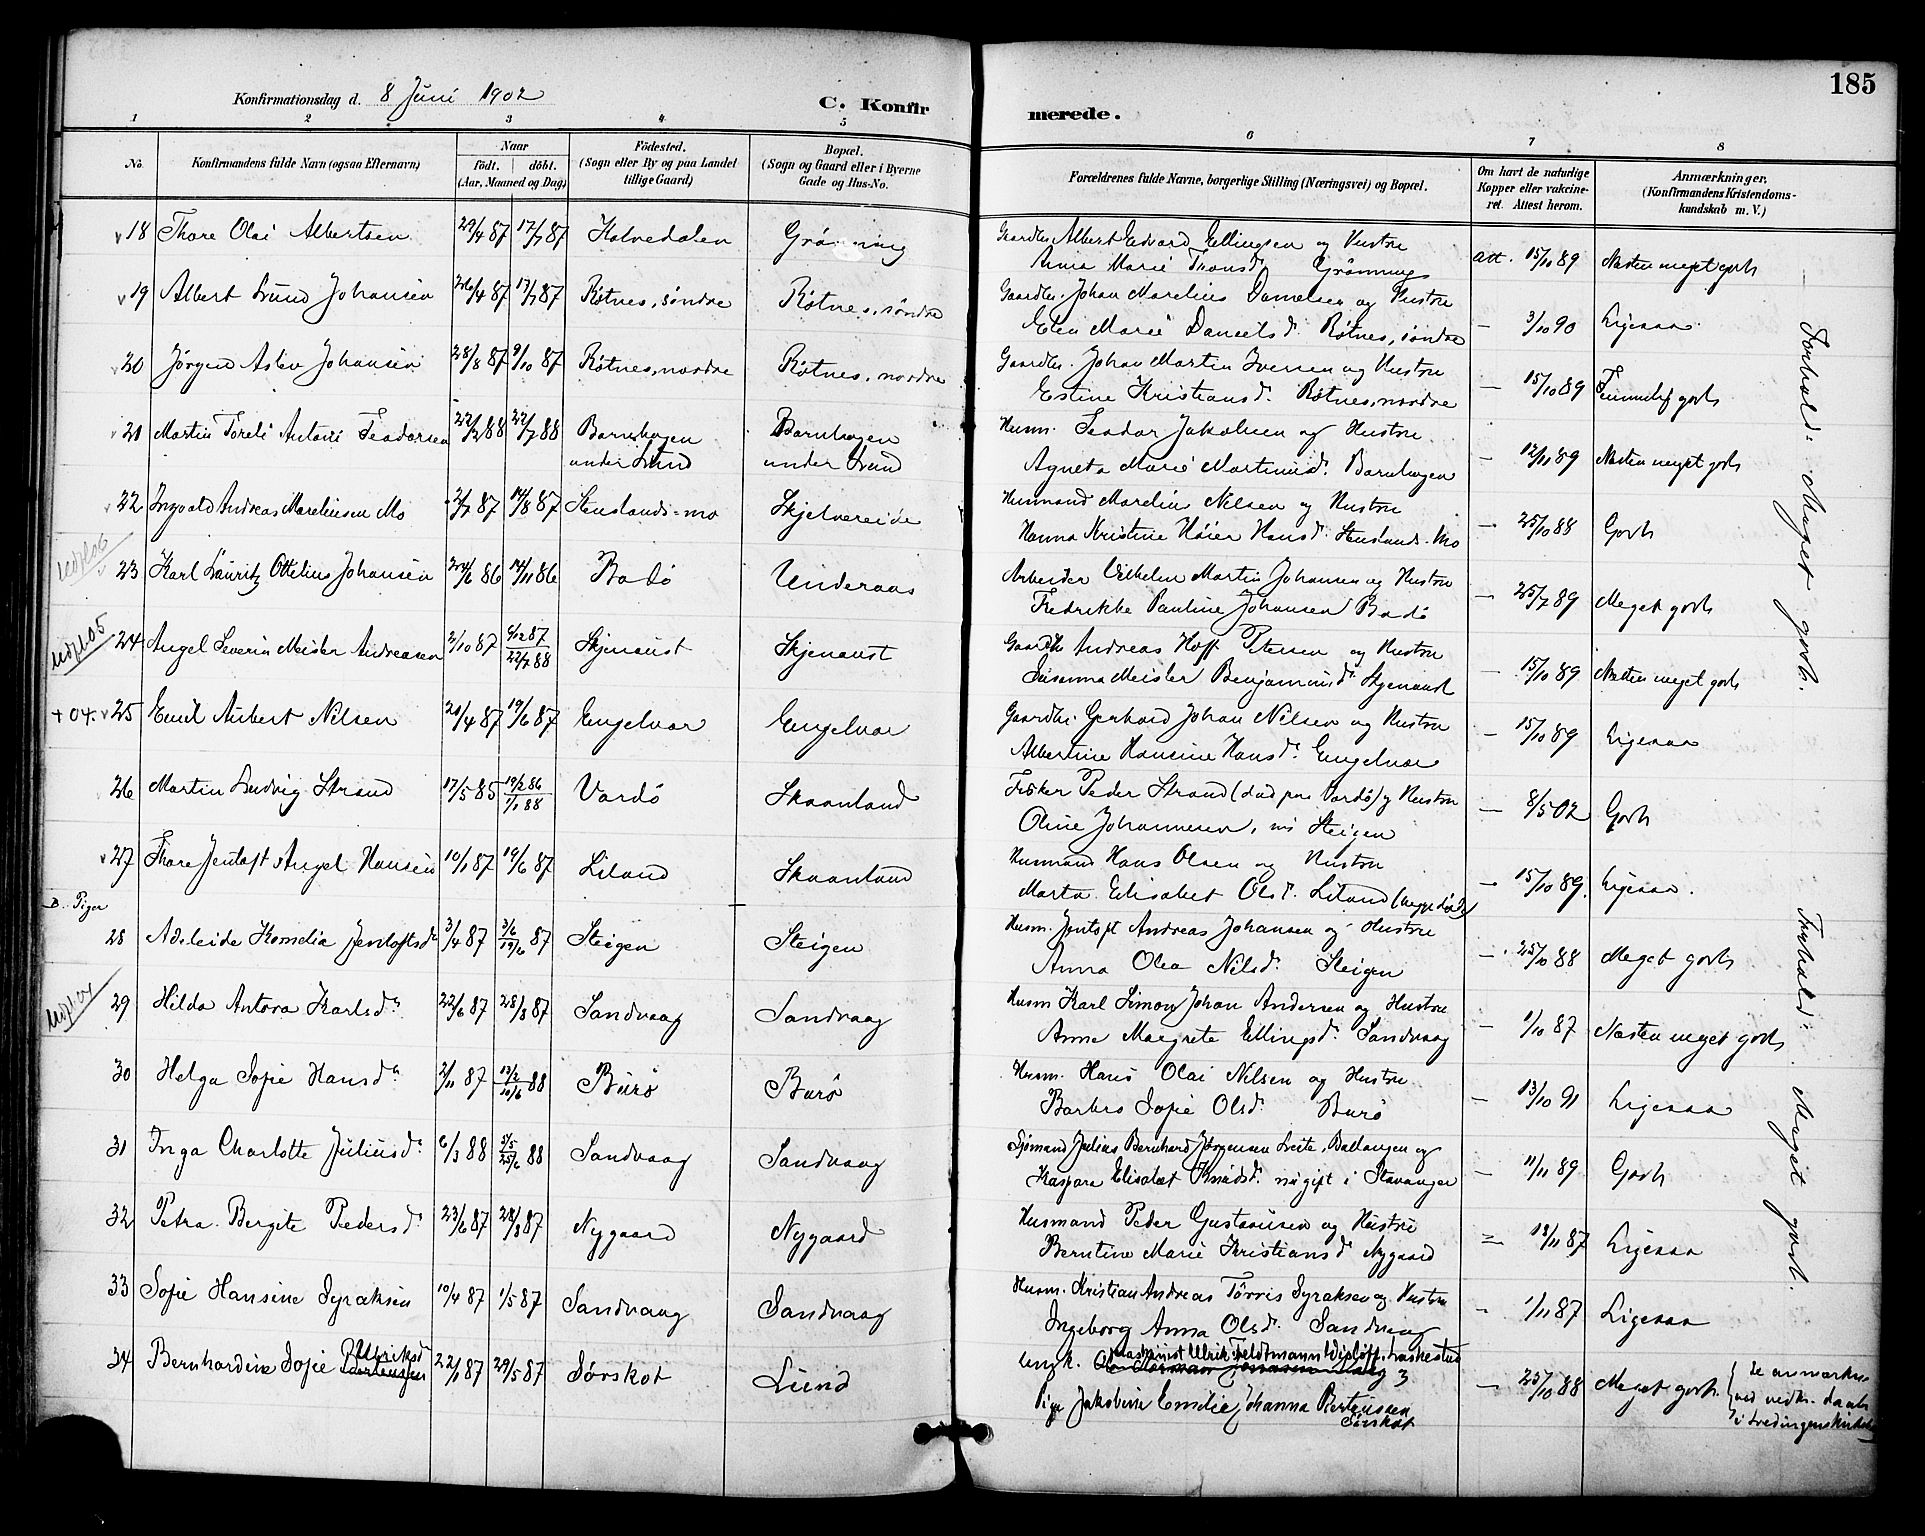 185
Konfirmationsdag d. 8 Juni 1902
C. Konfirmerede.
1 2 3 4 5 6 7 8
No. Konfirmandens fulde Navn (ogsaa Efternavn) Naar födt. döbt. (Aar, Maaned og Dag) Födested. (Sogn eller By og paa Landet tillige Gaard) Bopæl. (Sogn og Gaard eller i Byerne Gade og Hus-No.) Forældrenes fulde Navne, borgerlige Stilling (Næringsvei) og Bopæl. Om havt de naturlige Kopper eller vakcineret. Attest herom. Anmærkninger. (Konfirmandens Kristendomskundskab m. V.)
18 Thore Olai Albertsen 29/4 87 17/7 87 Holvedalen Grönning Gaardbr. Albert Edvard Ellingsen og Hustru
Anna Marie Thonsd. Grönning att. 15/10 89 Næsten meget godt
19 Albert Lund Johansen 26/4 87 17/7 87 Røtnes, söndre Røtnes, söndre Gaardbr. Johan Marelius Danielsen og Hustru
Elen Marie Danielsd. Røtnes, söndre — 3/10 90 Ligesaa
20 Jörgen Aslev Johansen 28/8 87 9/10 87 Røtnes, nordre Røtnes, nordre Gaardbr. Johan Martin Iversen og Hustru
Estine Kristiansd. Røtnes, nordre — 15/10 89 Temmelig godt
21 Martin Toreli Antoni Teodorsen 22/2 88 22/7 88 Barnhagen under Lund Barnhagen under Lund Husm. Teodor Jakobsen og Hustru
Agneta Marie Martinusd. Barnhagen — 12/11 89 Næsten meget godt
22 Ingvald Andreas Mareliusen Mo 2/7 87 14/8 87 Stenslands-mo Skjelvereide Husmand Marelius Nilsen og Hustru
Hanna Kristine Høier Hansd. Stenslands-Mo — 25/10 88 Godt
23 Karl Lauritz Ottelius Johansen 24/6 86 14/11 86 Bodö Underaas Arbeider Vilhelm Martin Johansen og Hustru
Fredrikke Pauline Johansen Bodö — 25/7 89 Meget godt
24 Angel Severin Meisler Andreasen 2/10 87 6/12 87 22/7 88 Skjenaust Skjenaust Gaardbr. Andreas Hoff Petersen og Hustru
Susanna Meisler Benjaminsd. Skjenaust — 15/10 89 Næsten meget godt
+ 04. 25 Emil Aubert Nilsen 20/4 87 19/6 87 Engelvær Engelvær Gaardbr. Gerhard Johan Nilsen og Hustru
Albertine Hansine Hansd. Engelvær — 15/10 89 Ligesaa
26 Martin Ludvig Strand 17/5 85 19/2 86 1/1 88 Vardö Skaanland Fisker Peder Strand (död paa Vardö) og Hustru
Oline Johannesen, nu Steigen — 8/5 02 Godt
27 Thore Jentoft Angel Hansen 10/1 87 19/6 87 Liland Skaanland Husmand Hans Olsen og Hustru
Marta Elisabet Olsd. Liland (begge döde) — 15/10 89. Ligesaa.
B. Piger
28 Adeleide Kornelia Jentoftsd. 3/4 87 3/6 19/6 87 Steigen Steigen Husm. Jentoft Andreas Johansen og Hustru
Anna Olea Nilsd. Steigen — 25/10 88 Meget godt
29 Hilda Antora Karlsd. 22/6 87 28/8 87 Sandvaag Sandvaag Husm Karl Simon Johan Andersen og Hustru
Anne Margrete Ellingsd. Sandvaag — 1/10 87 Næsten meget godt
30 Helga Sofie Hansd. 2/11 87 13/2 10/6 88 Burö Burö Husm. Hans Olai Nilsen og Hustru
Barbro Sofie Olsd. Burö — 13/10 91 Ligesaa
31 Inga Charlotte Juliusd. 6/3 88 5/5 25/6 88 Sandvaag Sandvaag Sjömand Julius Bernhard Jörgensen Leite, Ballangen og
Kaspara Elisabet Knudsd. nu gift i Stavanger — 11/11 89 Godt
32 Petra Bergite Pedersd. 23/6 87 28/8 87 Nygaard Nygaard Husmand Peder Gustavsen og Hustru
Berntine Marie Kristiansd. Nygaard = 12/11 87 Ligesaa
33 Sofie Hansine Syraksen 10/4 87 1/5 87 Sandvaag Sandvaag Husm. Kristian Andreas Törris Syraksen og Hustru
Ingeborg Anna Olsd. Sandvaag — 1/11 87 Ligesaa
34 Bernhardine Sofie Ulriksd. 22/1 87 29/5 87 Sörskot Lund Ungk. Maskinist Ulrik Feldtmann og
Pige Jakobine Emilie Johanna Bertensen
Sörskot — 25/10 88 Meget godt. Se anmærkn.
ved vedk. daab
i Ledingens kirkebog
Forhold: Meget godt.
Forhold: Meget godt.